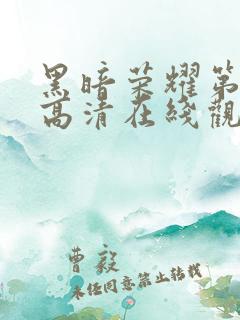 黑暗荣耀第
高清在线觀
曹毅
未经同意禁止转载